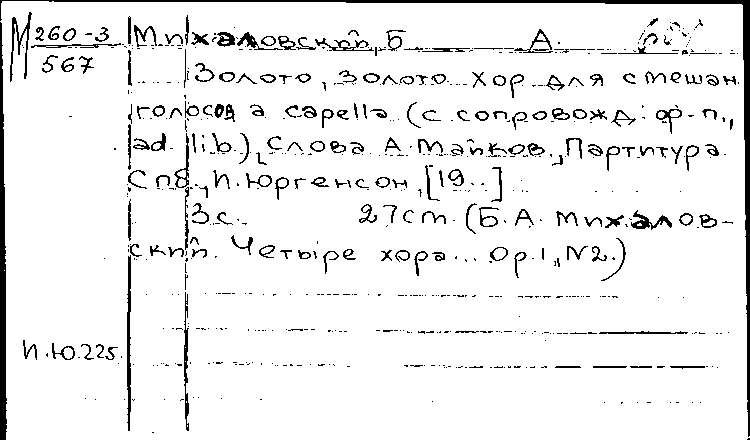 М 260-3 Михаловский, Б А.
567
Золото, золото. Хор для смешан.
голосов a capella (с сопровожд. ф-п.,
ad. lib.), Слова А. Майков., Партитура.
Спб., И. Юргенсон, [19..]
3 с. 27 cm. (Б. А. Михалов-
ский. Четыре хора... Op. 1, N2.)
И.Ю.225.